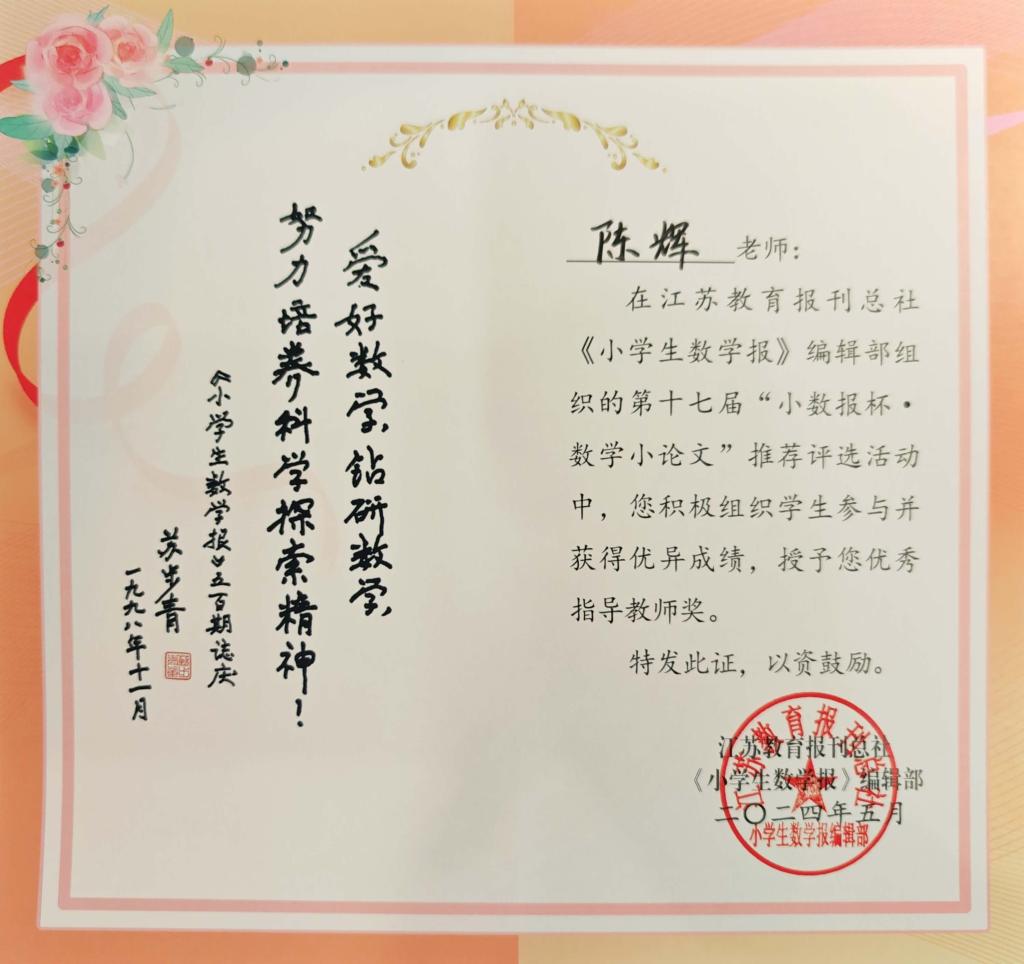 爱好数学钻研数学
努力培养科学探索精神！
《小学生数学报》五百期志庆
苏步青
一九九八年十一月
陈辉老师：
在江苏教育报刊总社
《小学生数学报》编辑部组
织的第十七届“小数报杯·
数学小论文”推荐评选活动
中，您积极组织学生参与并
获得优异成绩，授予您优秀
指导教师奖。
特发此证，以资鼓励。
江苏教育报刊总社
《小学生数学报》编辑部
二〇二四年五月
江苏教育报刊总社
小学生数学报编辑部